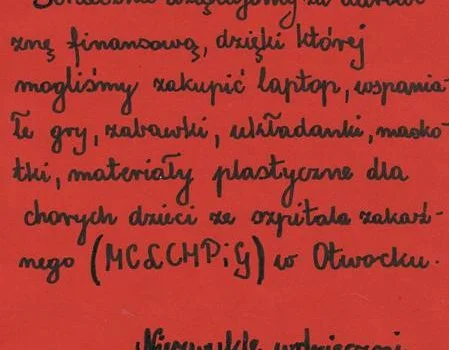 Serdecznie dziękujemy za darowi-
znę finansową, dzięki której
mogliśmy zakupić laptop, wspania-
łe gry, zabawki, układanki, masko-
tki, materiały plastyczne dla
chorych dzieci ze szpitala zakaź-
nego (MCLCHPiG) w Otwocku.
Niezwykle wdzięczni